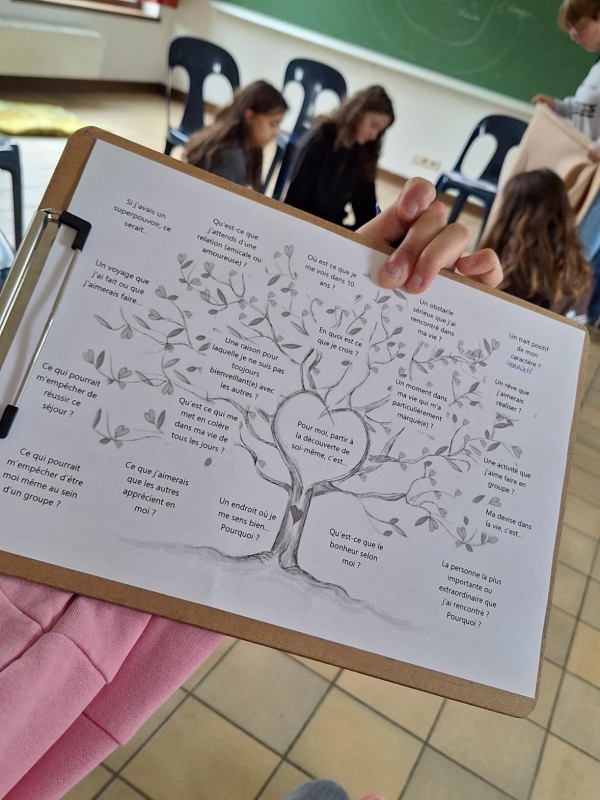 Si j'avais un
superpouvoir, ce
serait...
Qu'est-ce que
j'attends d'une
relation (amicale ou
amoureuse) ?
Où est ce que je
me vois dans 10
ans ?
Un obstacle
sérieux que j'ai
rencontré dans
ma vie ?
Un trait positif
de mon
caractère ?
Un voyage que
j'ai fait ou que
j'aimerais faire...
Une raison pour
laquelle je ne suis pas
toujours
bienveillant(e) avec
les autres ?
En quoi est ce
que je crois ?
Un moment dans
ma vie qui m'a
particulièrement
marqué(e) ?
Un rêve que
j'aimerais
réaliser ?
Ce qui pourrait
m'empêcher de
réussir ce
séjour ?
Qu'est-ce qui me
met en colère
dans ma vie de
tous les jours ?
Pour moi, partir à
la découverte de
soi-même, c'est...
Une activité que
j'aime faire en
groupe ?
Ce qui pourrait
m'empêcher d'être
moi même au sein
d'un groupe ?
Ce que j'aimerais
que les autres
apprécient en
moi ?
Un endroit où je
me sens bien...
Pourquoi ?
Qu'est-ce que le
bonheur selon
moi ?
Ma devise dans
la vie, c'est...
La personne la plus
importante ou
extraordinaire que
j'ai rencontré ?
Pourquoi ?